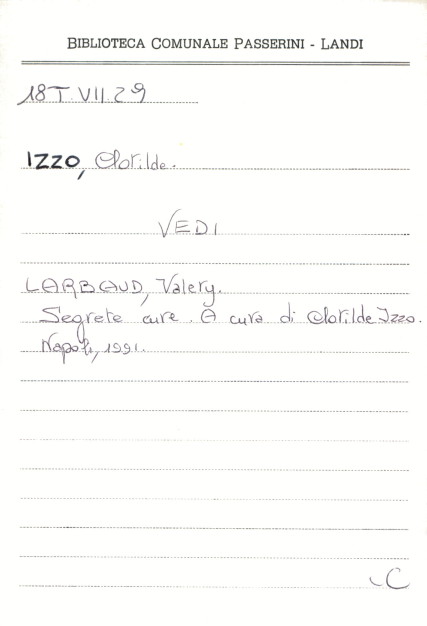 BIBLIOTECA COMUNALE PASSERINI - LANDI
18T.VII.29
IZZO, Clotilde.
VEDI
LARBAUD, Valery.
Segrete cure. A cura di Clotilde Izzo.
Napoli, 1991.
C